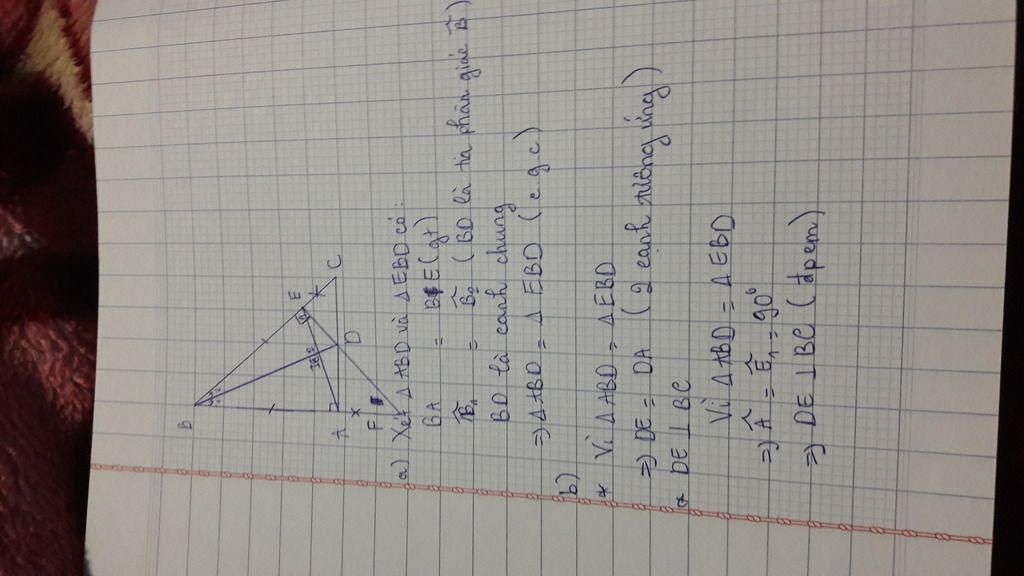 B
E
C
A
D
F
a) Xét Δ ABD và Δ EBD có:
BA = BE (gt)
B̂₁ = B̂₂ (BD là tia phân giác B̂)
BD là cạnh chung
=> Δ ABD = Δ EBD (c g c)
b)
* Vì Δ ABD = Δ EBD
=> DE = DA (2 cạnh tương ứng)
* DE ⊥ BC
Vì Δ ABD = Δ EBD
=> Â = Ê₁ = 90°
=> DE ⊥ BC (đpcm)